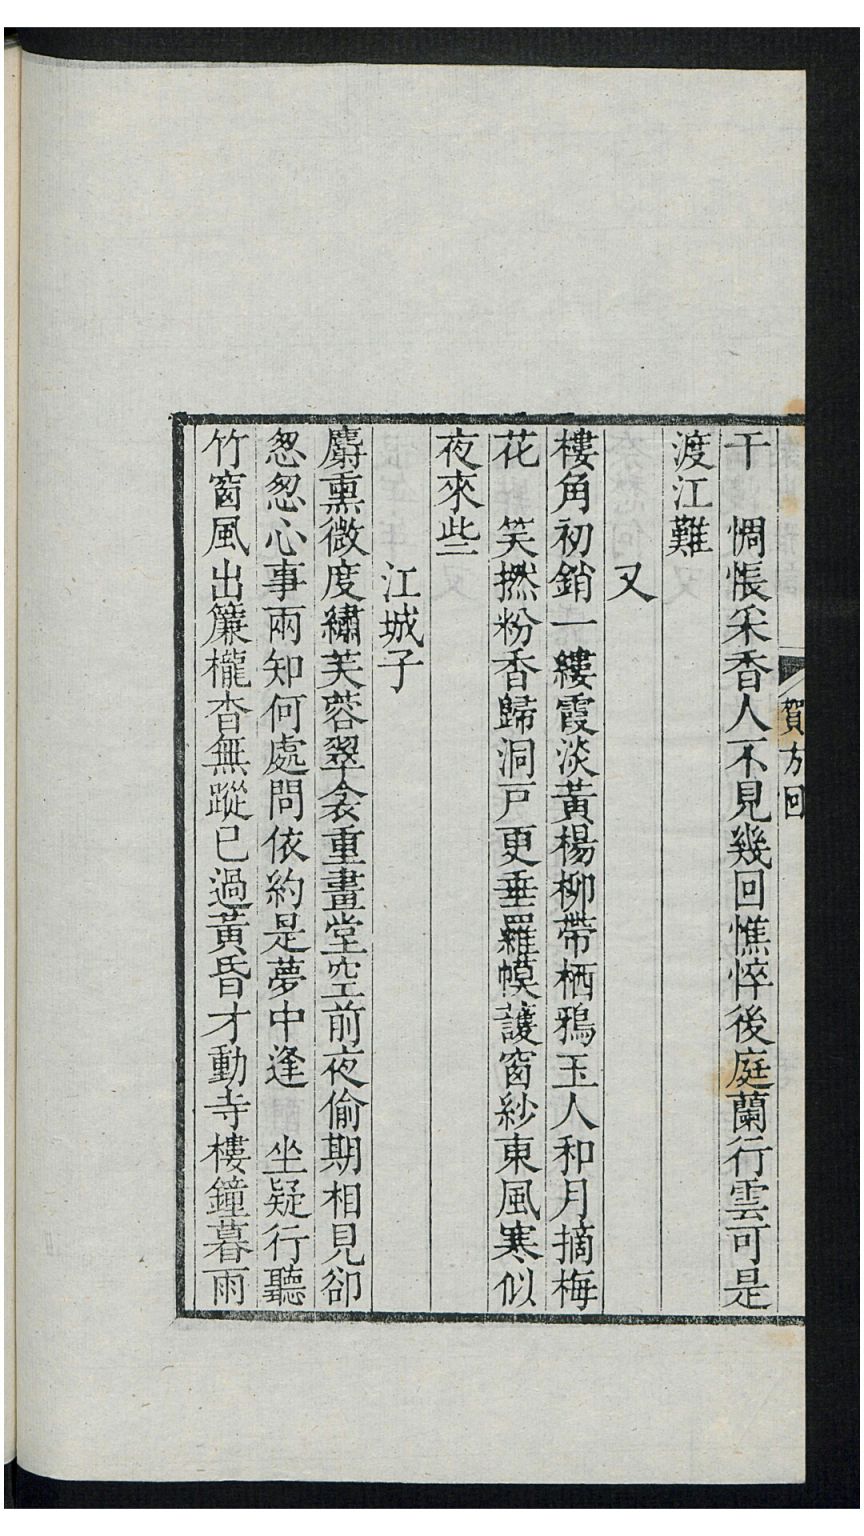 賀方回
干　惆悵采香人不見幾回憔悴後庭蘭行雲可是
渡江難
又
樓角初銷一縷霞淡黃楊柳帶栖鴉玉人和月摘梅
花　笑撚粉香歸洞戶更垂羅幙護窗紗東風寒似
夜來些
江城子
麝熏微度繡芙蓉翠衾重畫堂空前夜偷期相見卻
怱怱心事兩知何處問依約是夢中逢　坐疑行聽
竹窗風出簾櫳杳無蹤已過黃昏才動寺樓鐘暮雨